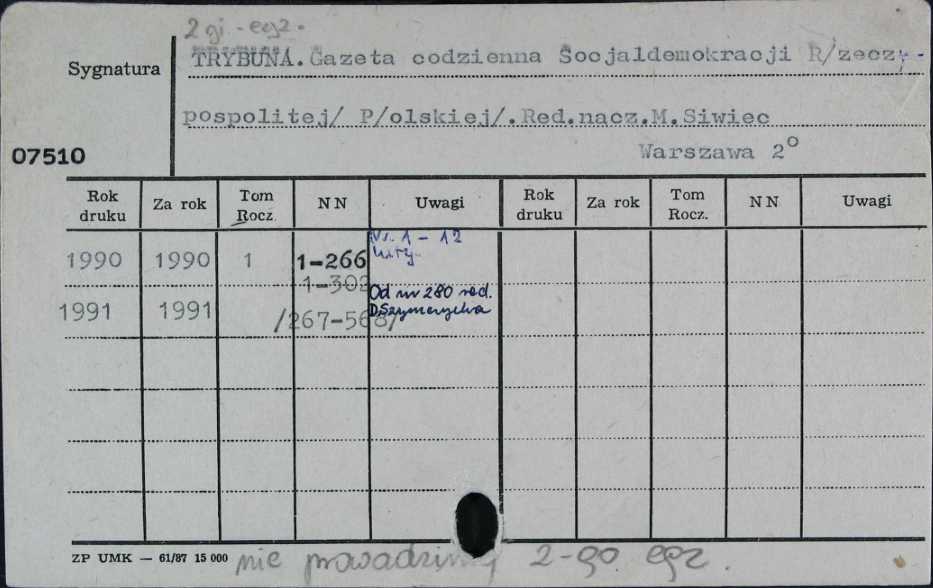 2 gi - egz.
Sygnatura TRYBUNA. Gazeta codzienna Socjaldemokracji R/zeczy-
pospolitej/ P/olskiej/.Red.nacz.M.Siwiec
07510 Warszawa 2°
Rok druku Za rok Tom Rocz. NN Uwagi Rok druku Za rok Tom Rocz. NN Uwagi
Nr. 1 - 12
1990 1990 1 1-266
1-302
Od nr 280 red.
1991 1991 /267-568/
ZP UMK — 61/87 15 000 nie prowadzimy 2-go egz.